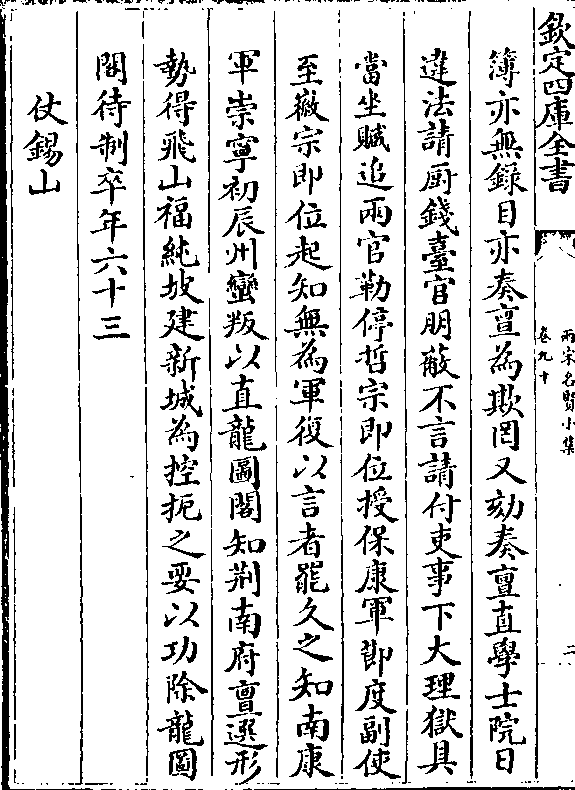 欽定四庫全書
兩宋名賢小集
卷九十
二
簿亦無録目亦奏亶為欺罔又劾奏亶直學士院日
違法請厨錢臺官朋蔽不言請付吏事下大理獄具
當坐贓追兩官勒停哲宗即位授保康軍節度副使
至徽宗即位起知無為軍復以言者罷久之知南康
軍崇寧初辰州蠻叛以直龍圖閣知荆南府亶選形
勢得飛山福純坡建新城為控扼之要以功除龍圖
閣待制卒年六十三
仗錫山